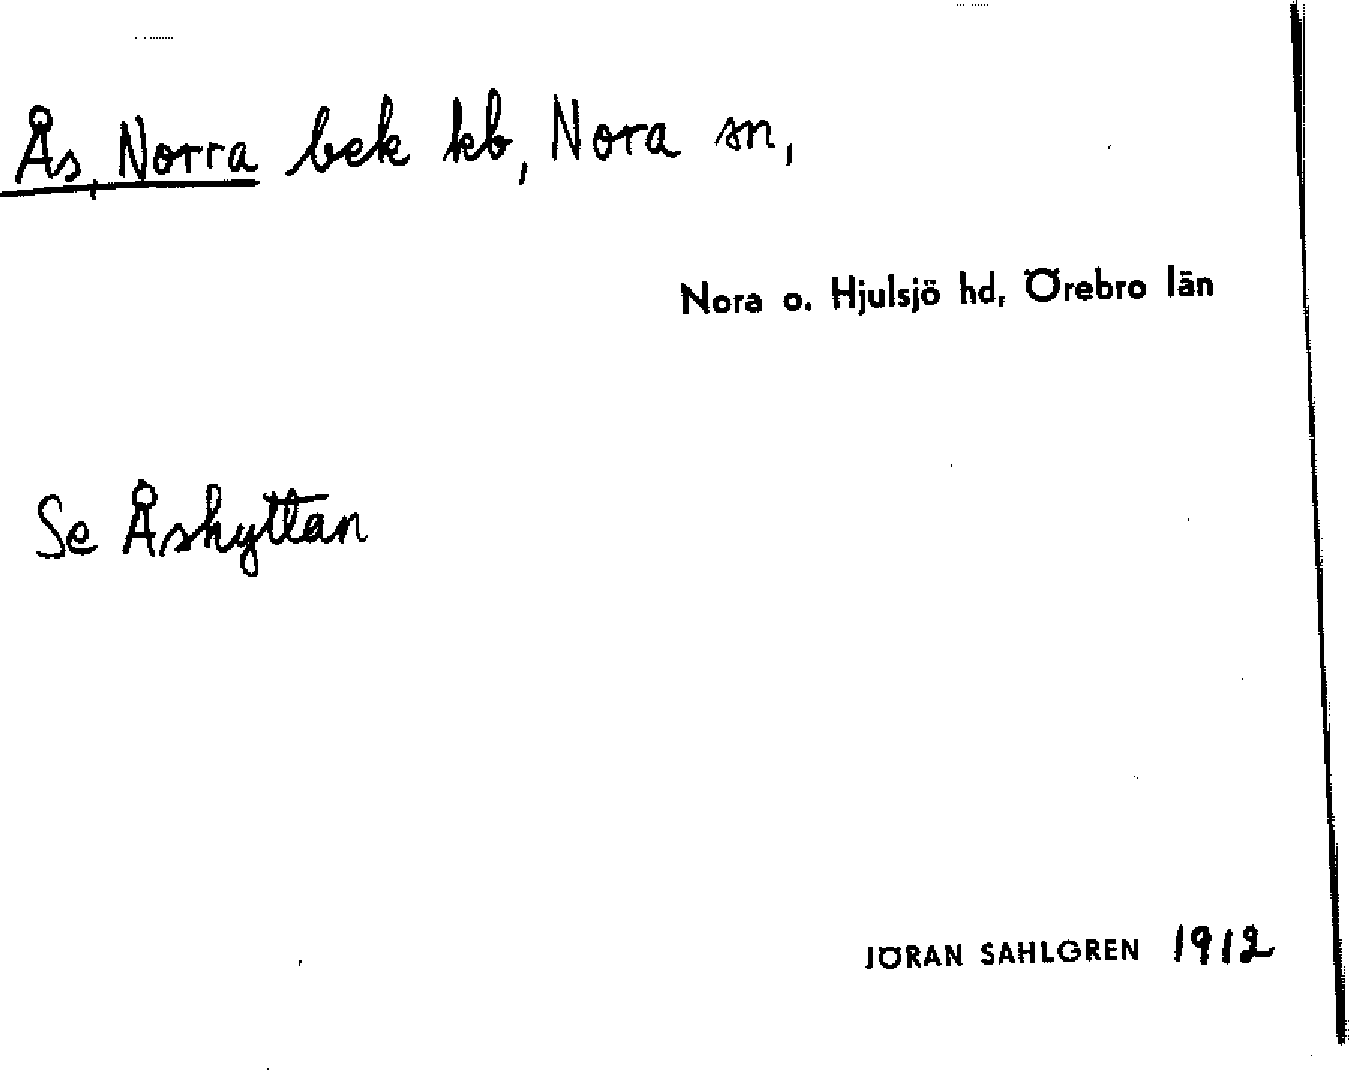 Ås, Norra bek kb, Nora sn,
Nora o. Hjulsjö hd, Örebro län
Se Åshyttan
JÖRAN SAHLGREN 1912